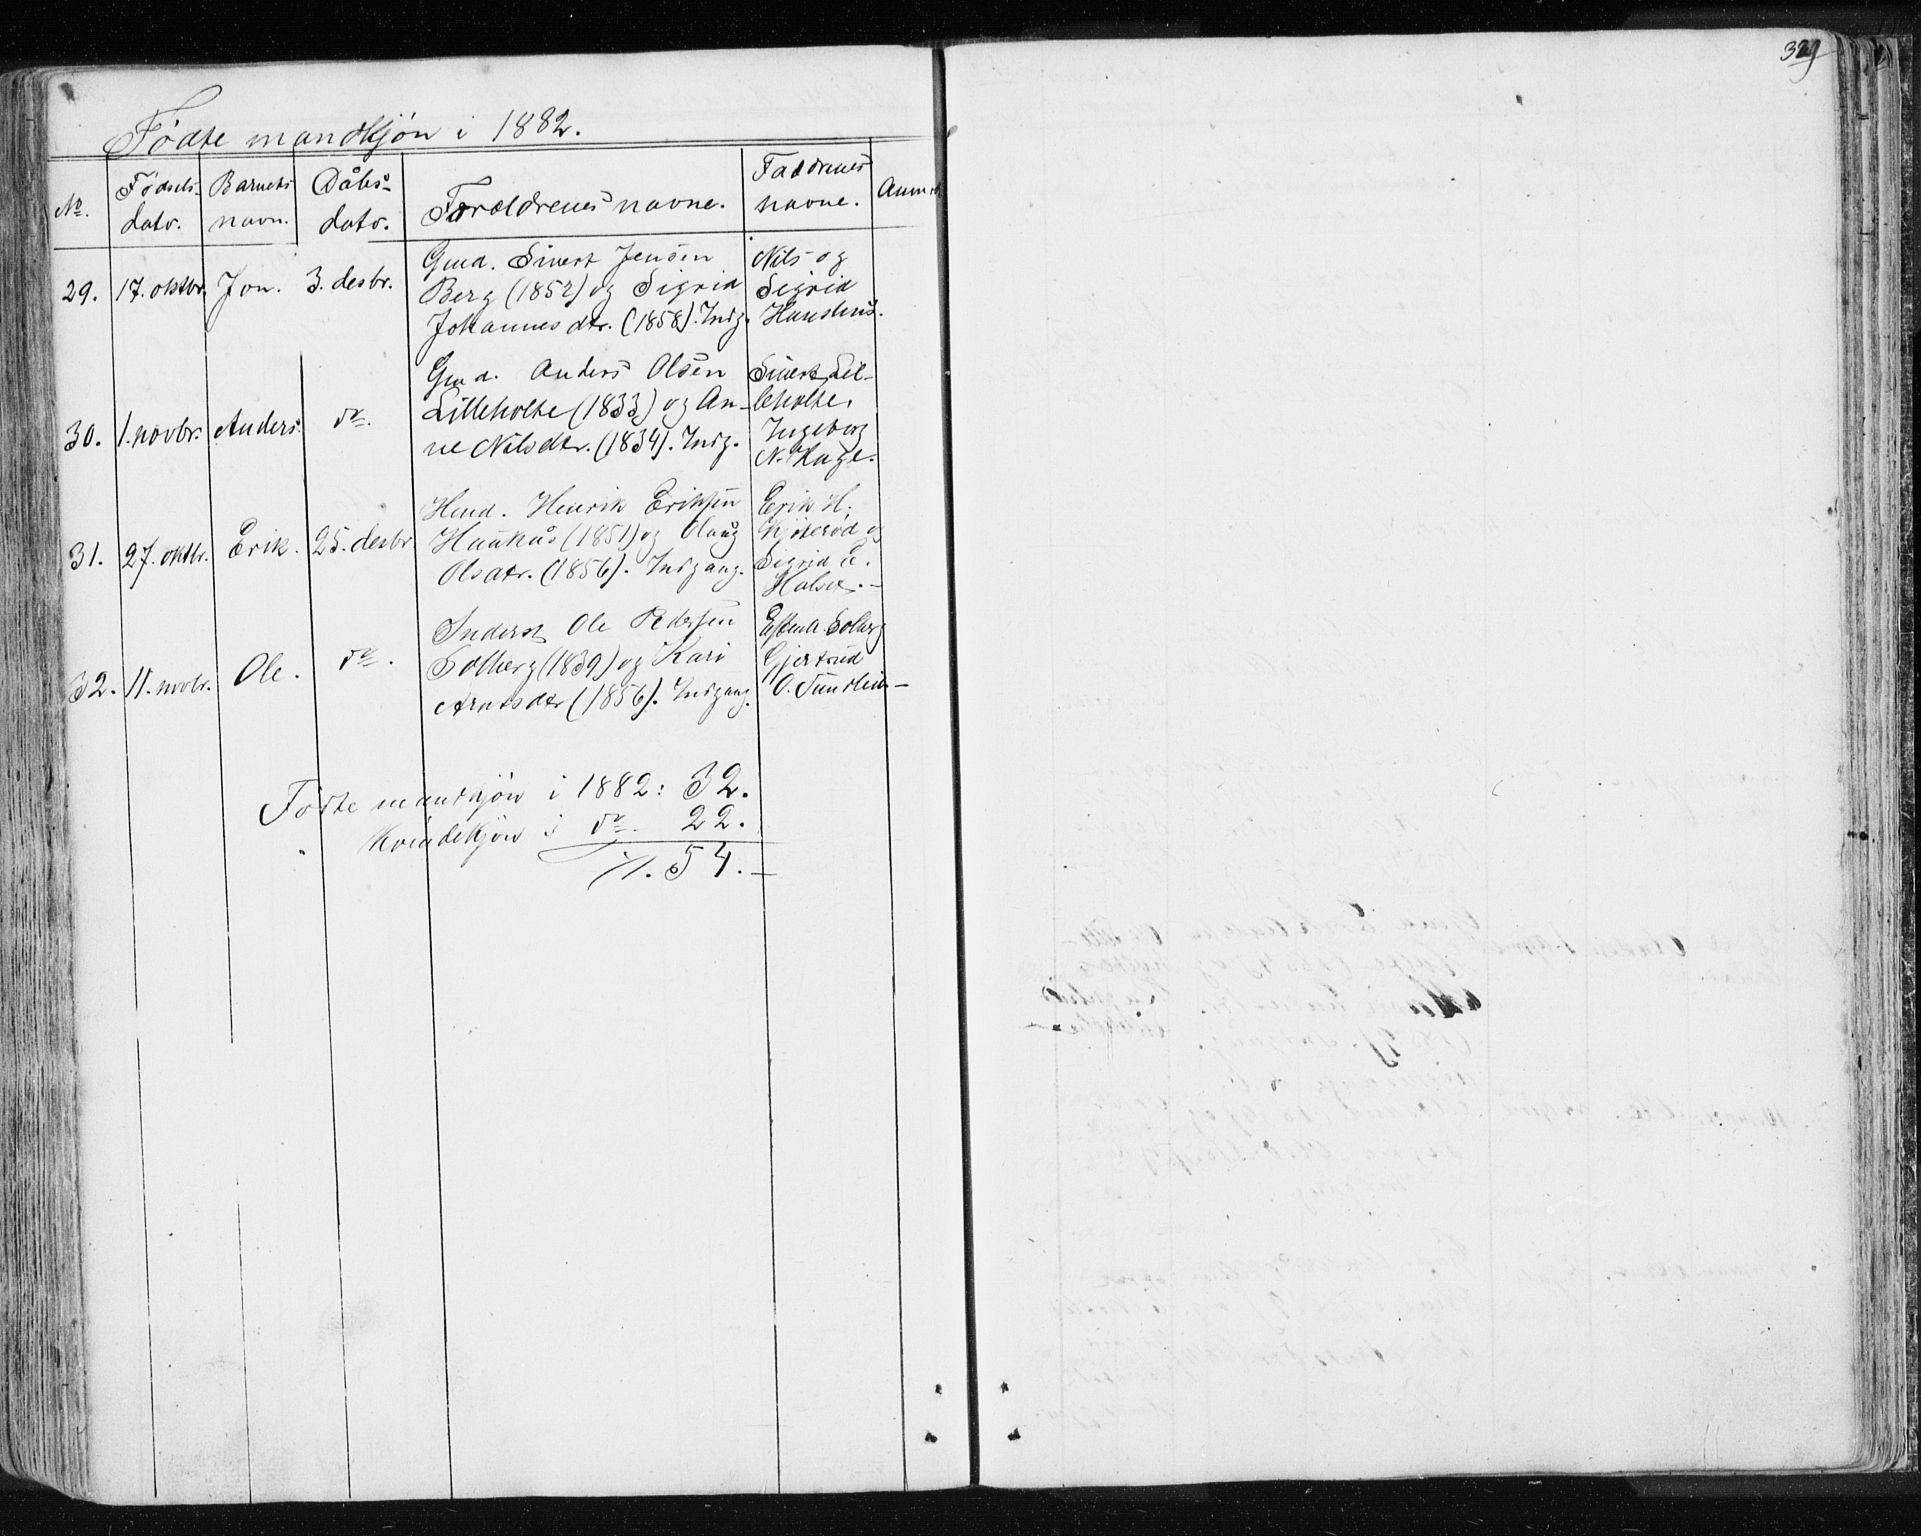 339
Fødte mandkjøn i 1882.
No. Fødsels- dato. Barnets navn. Dåbs- dato. Forældrenes navne. Faddrenes navne. Anm.
29. 17. oktbr. Jon. 3. desbr. Gmd. Sivert Jensen
Berg (1852) og Sigrid
Johannesdtr. (1858). Indg.
Nils og
Sigrid
30. 1. novbr. Anders. do. Gmd. Anders Olsen
Lilleholte (1833) og An-
ne Nilsdtr. (1834). Indg.
Sivert Lil-
leholte,
Ingeborg
N. Hage.
31. 27. oktbr. Erik. 25. desbr. Hmd. Henrik Eriksen
(1851) og
Olsdtr. (1856). Indgang.
Erik H.
og
Sigrid E.
Halset. -
32. 11. novbr. Ole. do. Inderst Ole Pedersen
Solberg (1839) og Kari
Arntsdtr (1856). Indgang.
Esten A. Solberg
Gjertrud
O.
Fødte mandkjøn i 1882: 32.
" kvindekjøn i do. 22.
54. -